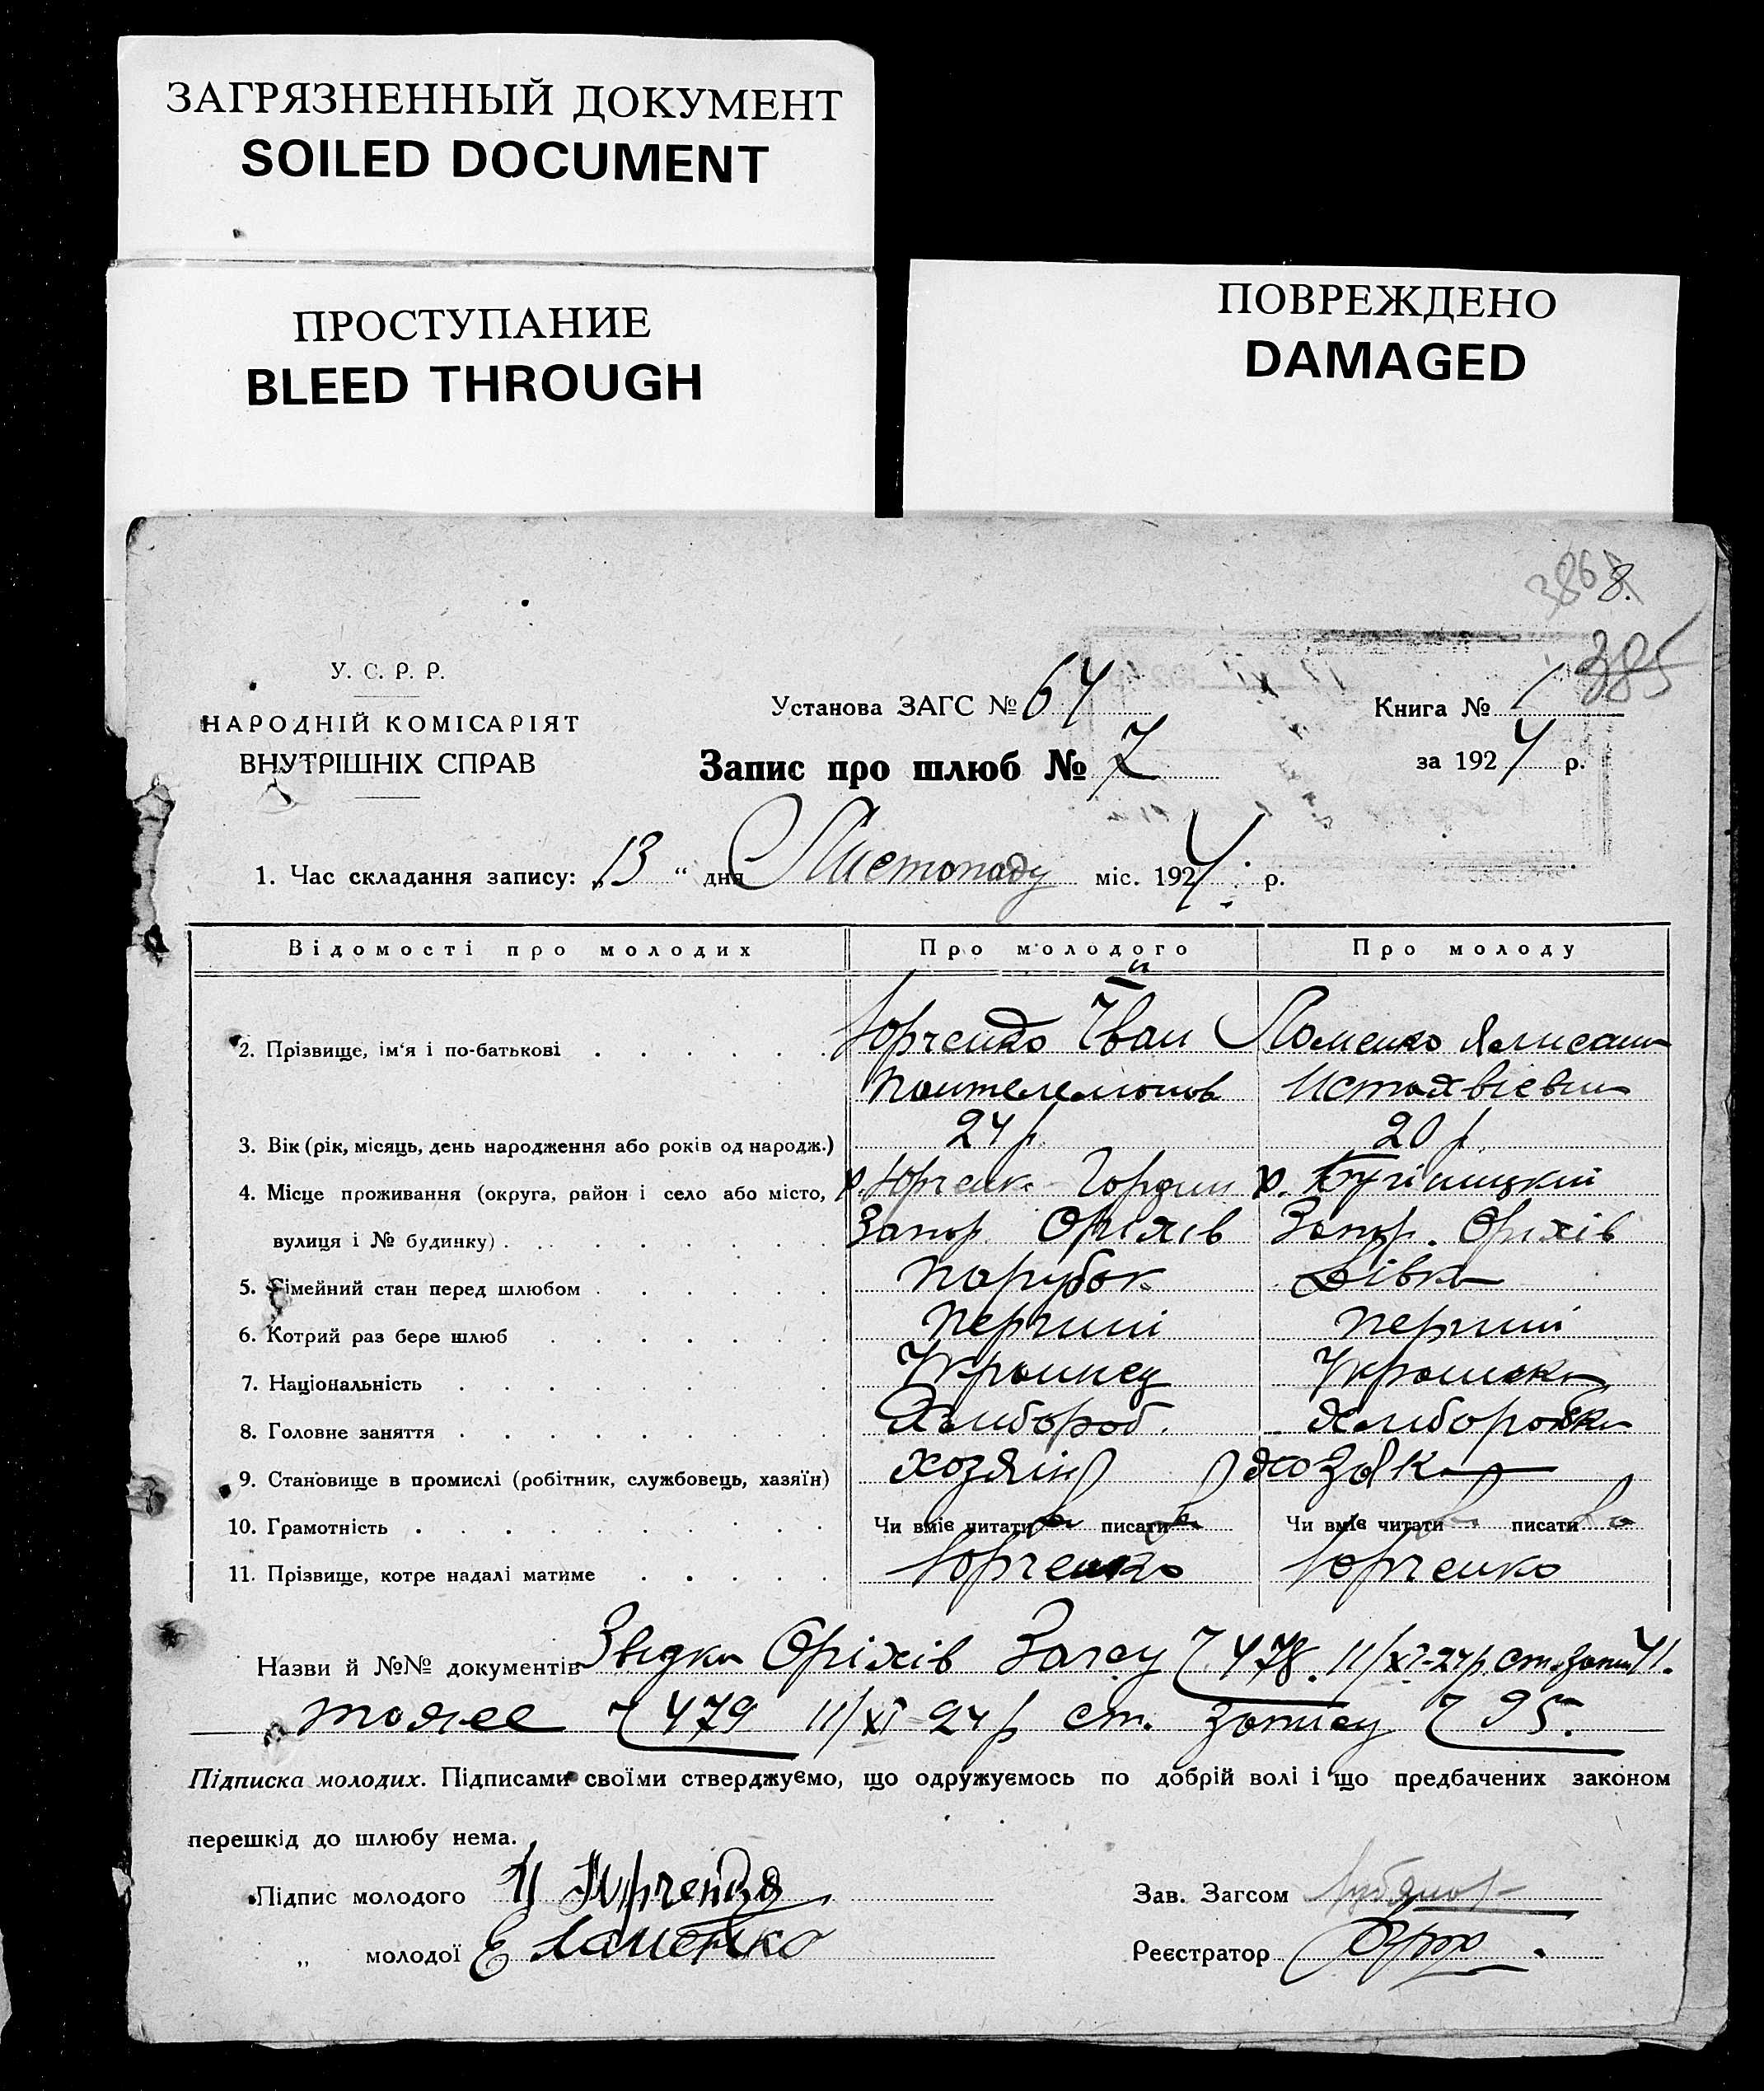 ЗАГРЯЗНЕННЫЙ ДОКУМЕНТ
SOILED DOCUMENT
ПРОСТУПАНИЕ
BLEED THROUGH
ПОВРЕЖДЕНО
DAMAGED
8.
385
У. С. Р. Р.
НАРОДНІЙ КОМІСАРІЯТ
ВНУТРІШНІХ СПРАВ
Установа ЗАГС № 64
Книга № 1
Запис про шлюб № 7
за 1924 р.
1. Час складання запису: „13 “ дня Листопаду міс. 1924 р.
Відомості про молодих Про молодого Про молоду
2. Прізвище, ім‘я і по-батькові Юрченко Іван Ломенко
Пантелемонов
3. Вік (рік, місяць, день народження або років од народж.) 24 р. 20 р.
4. Місце проживання (округа, район і село або місто, х.
вулиця і № будинку) Запор Оріхів Запор. Оріхів
5. Сімейний стан перед шлюбом Парубок Дівка
6. Котрий раз бере шлюб перший перший
7. Національність Українец Українка
8. Головне заняття Хлибороб. Хлиборобка
9. Становище в промислі (робітник, службовець, хазяїн) хозяїн
10. Грамотність Чи вміє читати писати Чи вміє читати писати
11. Прізвище, котре надалі матиме Юрченко Юрченко
Назви й №№ документів Звідки Оріхів Загсу № 478. 11/XI-24 р. ст. запис 41.
тожее № 479 11/XI-24 р ст. запису № 95.
Підписка молодих. Підписами своїми стверджуємо, що одружуємось по добрій волі і що предбачених законом
перешкід до шлюбу нема.
Підпис молодого И Юрченко Зав. Загсом
„ молодої Е Ламенко Реєстратор